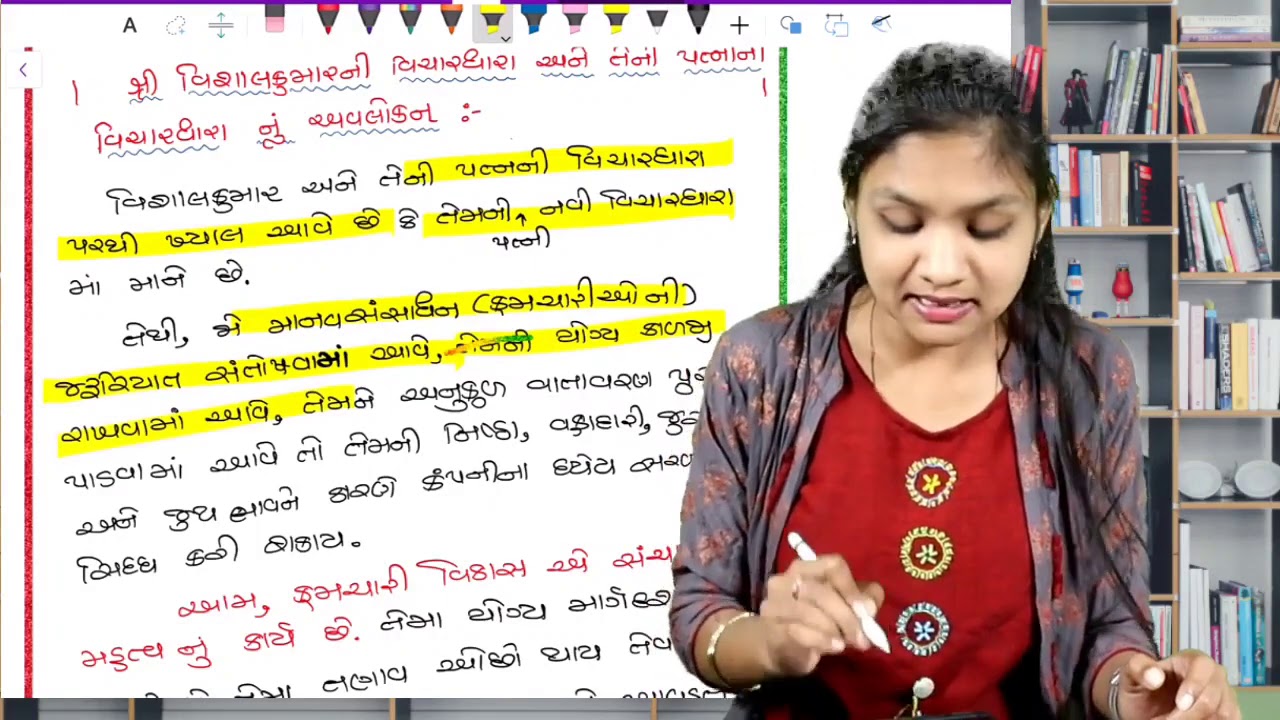 1 શ્રી વિશાલકુમારની વિચારધારા અને તેની પત્નીની
વિચારધારા નું અવલોકન :-
વિશાલકુમાર અને તેની પત્નની વિચારધારા
પરથી ખ્યાલ આવે છે કે તેમની નવી વિચારધારા
પત્ની
માં માને છે.
તેથી, જો માનવસંસાધન (કર્મચારીઓની)
જરૂરિયાત સંતોષવામાં આવે, તેમની યોગ્ય કાળજી
રાખવામાં આવે, તેમને અનુકુળ વાતાવરણ પુરુ
પાડવામાં આવે તો તેમની નિષ્ઠા, વફાદારી,
અને જુથ ભાવને કારણે કંપનીના ધ્યેય
સિધ્ધ કરી શકાય.
આમ, કર્મચારી વિકાસ એ
મહત્વ નું કાર્ય છે. તેમા યોગ્ય
તણાવ ઓછો થાય તેવ
A